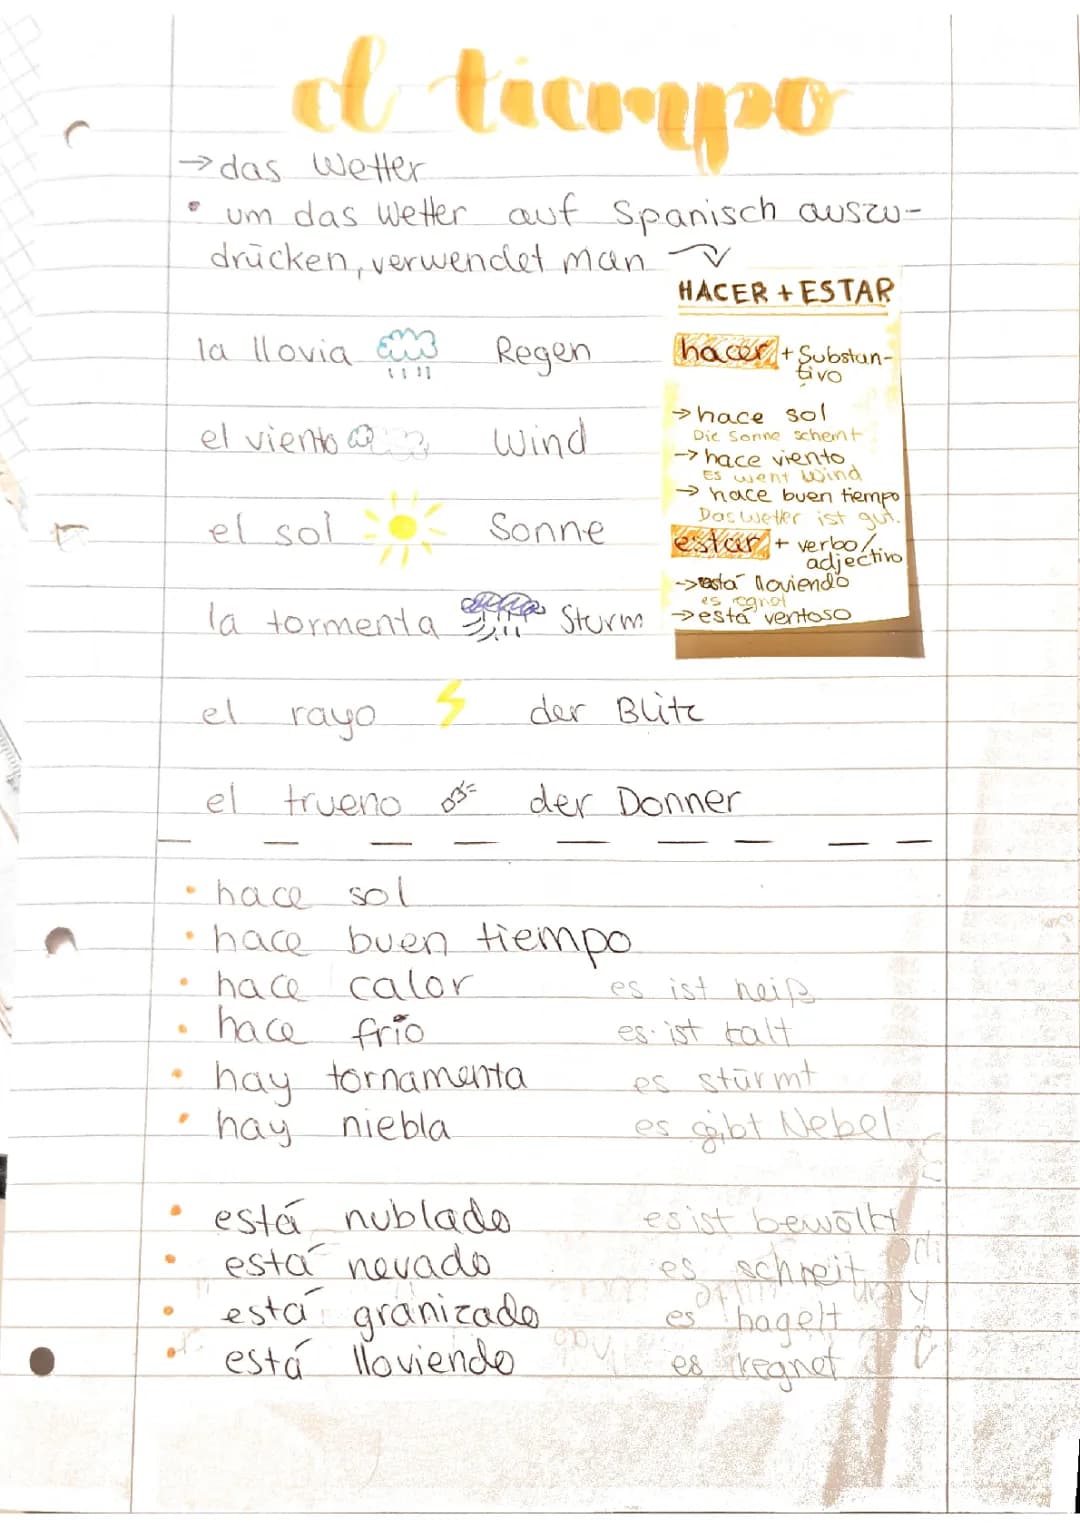 el tiempo
→ das Wetter
• um das Wetter auf Spanisch auszu-
drücken, verwendet man
HACER + ESTAR
hacer + Substan-
tivo
→ hace sol
Die Sonne scheint
→ hace viento
Es weht Wind
→ hace buen tiempo
Das Wetter ist gut.
estar + verbo/
adjectivo
→ está lloviendo
es regnet
→ está ventoso
la llovia Regen
el viento Wind
el sol Sonne
la tormenta Sturm
el rayo der Blitz
el trueno der Donner
• hace sol
• hace buen tiempo
• hace calor es ist heiß
• hace frío es ist kalt
• hay tornamenta es stürmt
• hay niebla es gibt Nebel
• está nublado es ist bewölkt
• está nevado es schneit
• está granizado es hagelt
• está lloviendo es regnet